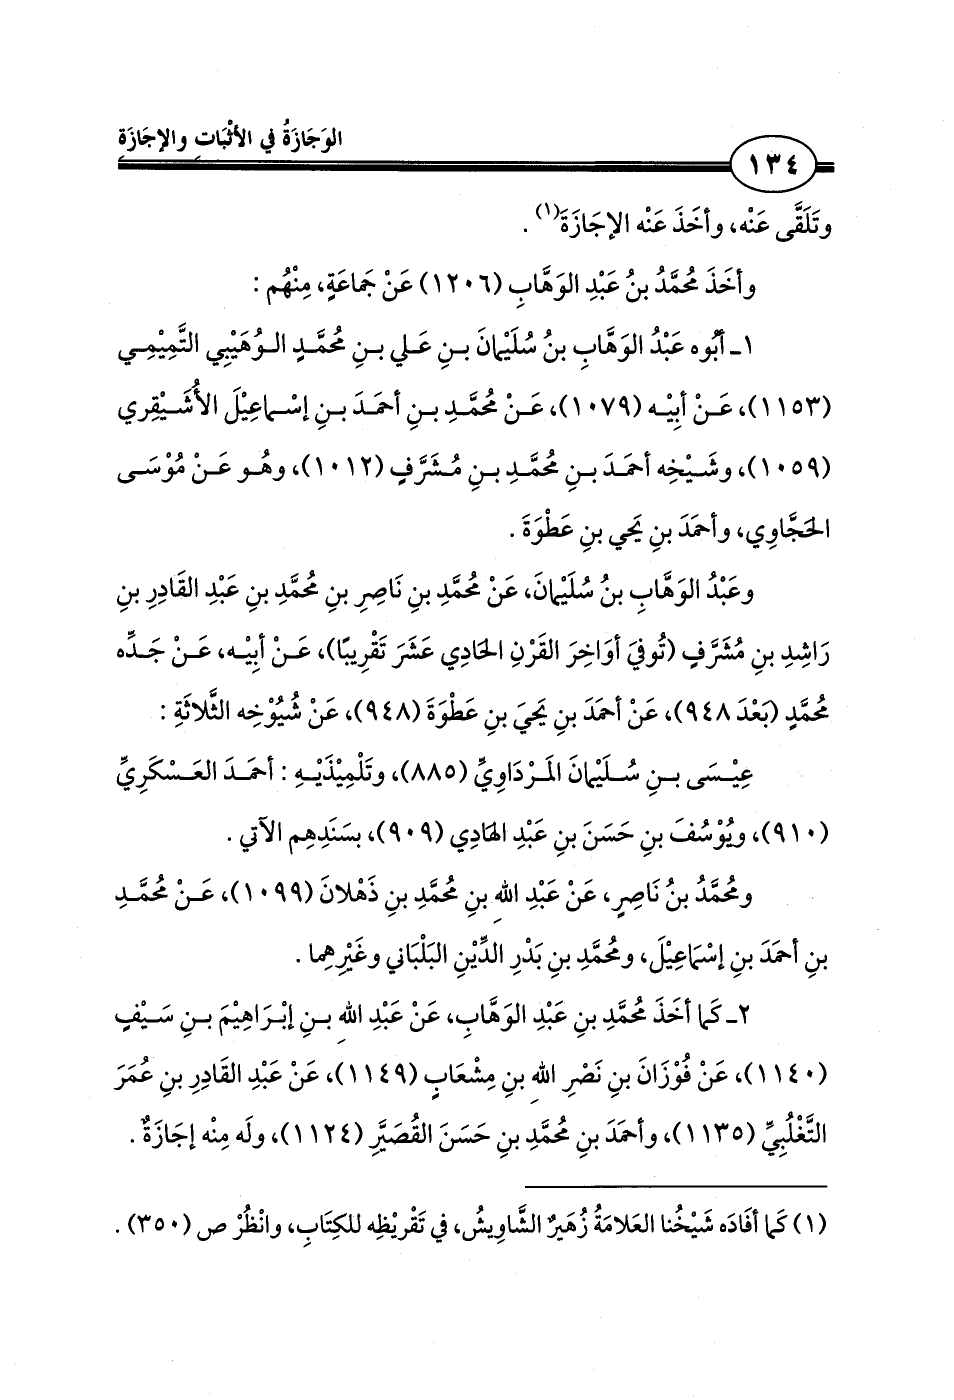 الوَجَازَةُ في الأثْبَاتِ والإجَازَةِ
١٣٤
وتَلَقَّى عَنْه، وأخَذَ عَنْه الإجَازَةَ(١).
وأخَذَ مُحمَّدُ بنُ عَبْدِ الوَهَّابِ (١٢٠٦) عَنْ جَماعَةٍ، مِنْهُم :
١ـ أبُوه عَبْدُ الوَهَّابِ بنُ سُلَيْمانَ بنِ عَلي بنِ مُحمَّدٍ الوُهَيْبِي التَّمِيْمِي
(١١٥٣)، عَنْ أبِيْه (١٠٧٩)، عَنْ مُحمَّدِ بنِ أحمَدَ بنِ إسْماعِيْلَ الأُشَيْقِري
(١٠٥٩)، وشَيْخِه أحمَدَ بنِ مُحمَّدِ بنِ مُشَرَّفٍ (١٠١٢)، وهُو عَنْ مُوْسَى
الحَجَّاوِي، وأحمَدَ بنِ يَحي بنِ عَطْوَةَ.
وعَبْدُ الوَهَّابِ بنُ سُلَيْمانَ، عَنْ مُحمَّدِ بنِ نَاصِرِ بنِ مُحمَّدِ بنِ عَبْدِ القَادِرِ بنِ
رَاشِدِ بنِ مُشَرَّفٍ (تُوفيَ أوَاخِرَ القَرْنِ الحَادِي عَشَرَ تَقْرِيبًا)، عَنْ أبِيْه، عَنْ جَدِّه
مُحمَّدٍ (بَعْدَ ٩٤٨)، عَنْ أحمَدَ بنِ يَحيَ بنِ عَطْوَةَ (٩٤٨)، عَنْ شُيُوْخِه الثَّلاثَةِ :
عِيْسَى بنِ سُلَيمانَ المَرْدَاوِيِّ (٨٨٥)، وتَلْمِيْذَيْهِ : أحمَدَ العَسْكَرِيِّ
(٩١٠)، ويُوْسُفَ بنِ حَسَنَ بنِ عَبْدِ الهَادِي (٩٠٩)، بسَنَدِهِم الآتي .
ومُحمَّدُ بنُ نَاصِرٍ، عَنْ عَبْدِ اللهِ بنِ مُحمَّدِ بنِ ذَهْلانَ (١٠٩٩)، عَنْ مُحمَّدِ
بنِ أحمَدَ بنِ إسْماعِيْلَ، ومُحمَّدِ بنِ بَدْرِ الدِّيْنِ البَلْبَاني وغَيْرِهِما .
٢ـ كَما أخَذَ مُحمَّدِ بنِ عَبْدِ الوَهَّابِ، عَنْ عَبْدِ اللهِ بنِ إبْرَاهِيْمَ بنِ سَيْفٍ
(١١٤٠)، عَنْ فُوْزَانَ بنِ نَصْرِ اللهِ بنِ مِشْعَابٍ (١١٤٩)، عَنْ عَبْدِ القَادِرِ بنِ عُمَرَ
التَّغْلُبِيِّ (١١٣٥)، وأحمَدَ بنِ مُحمَّدِ بنِ حَسَنَ القُصَيَّرِ (١١٢٤)، ولَه مِنْه إجَازَةٌ .
(١) كَما أفَادَه شَيْخُنا العَلامَةُ زُهَيرٌ الشَّاوِيشُ، في تَقْرِيْظِه للكِتَابِ، وانْظُرْ ص (٣٥٠) .